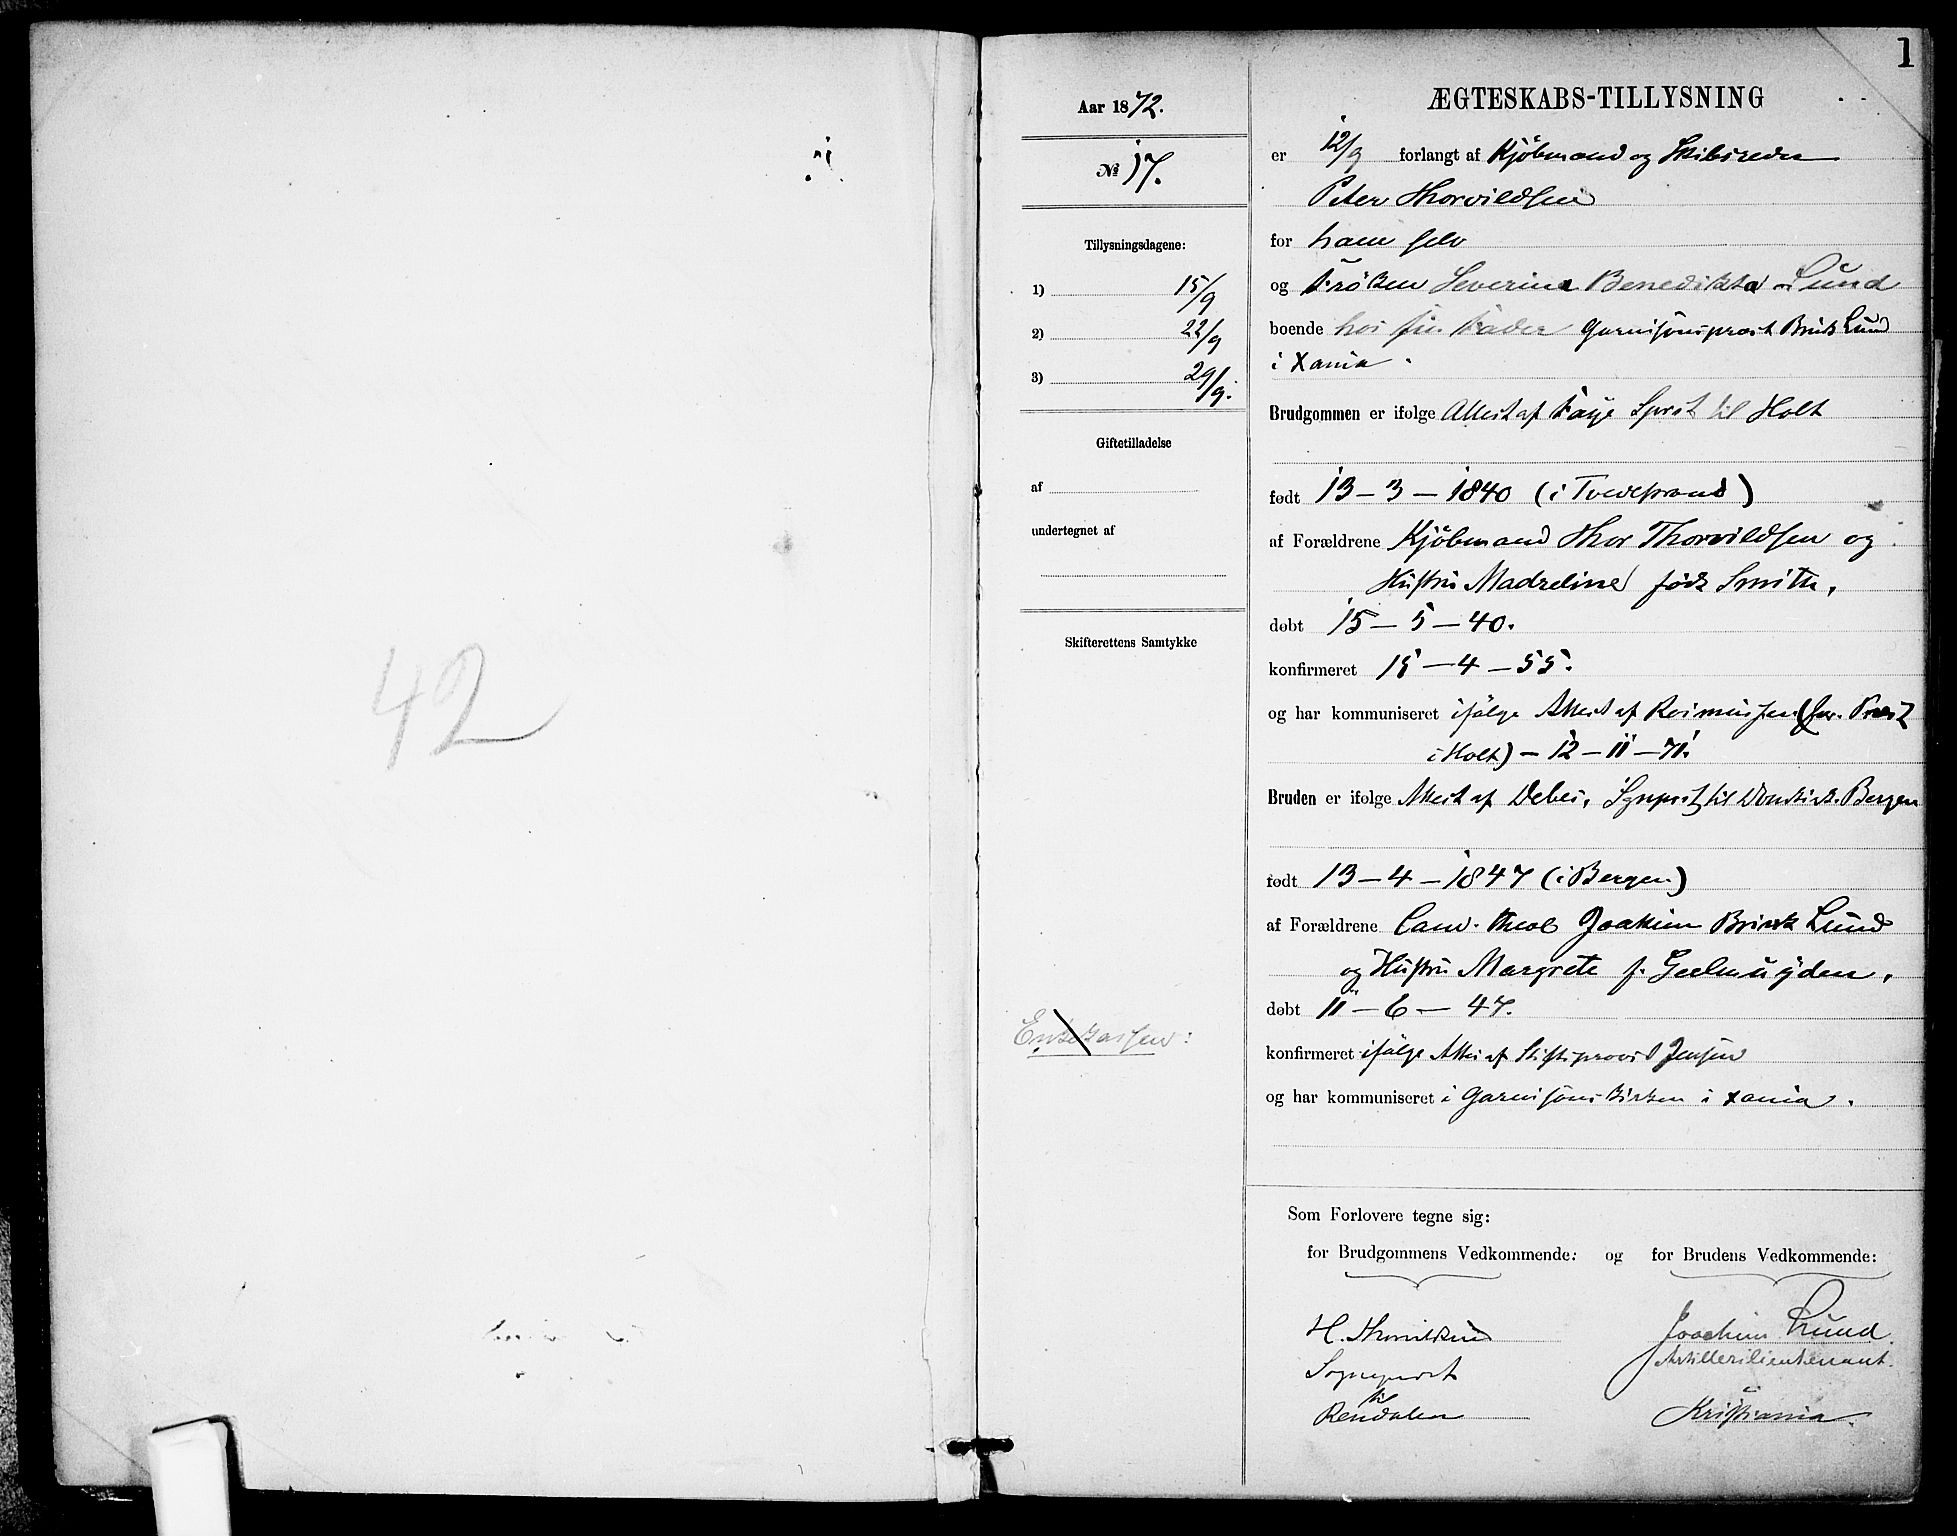 42
1
Aar 1872.
№ 17.
Tillysningsdagene:
1) 15/9
2) 22/9
3) 29/9.
Giftetilladelse
af
undertegnet af
Skifterettens Samtykke
Enkekassen:
ÆGTESKABS-TILLYSNING
er 12/9 forlangt af Kjöbmand og Skibsreder
Peter Thorvildsen
for ham selv
og Fröken Severina Benedikta Lund
boende hos sin Fader Garnisonspræst Brink Lund
i Xania.
Brudgommen er ifølge Attest af Faye Sprst til Holt
født 13-3-1840 (i Tvedestrand)
af Forældrene Kjöbmand Thor Thorvildsen og
Hustru Madseline född Smith,
døbt 15-5-40.
konfirmeret 15-4-55.
og har kommuniseret ifølge Attest af Rosmussen (for. Præst
i Holt) - 12-11-71.
Bruden er ifølge Attest af Debes, Sgnprst til Domkirk. Bergen
født 13-4-1847 (i Bergen)
af Forældrene Cand. theol Joakim Brink Lund
og Hustru Margrete f. Geelmuyden,
døbt 11-6-47.
konfirmeret ifølge Attes af Stiftsprovst Jensen
og har kommuniseret i Garnisonskirken i Xania.
Som Forlovere tegne sig:
for Brudgommens Vedkommende: og for Brudens Vedkommende:
H. Thorvildsen Joachim Lund.
Sogneprest Artillerilieutenant.
til
Rendalen Kristiania.